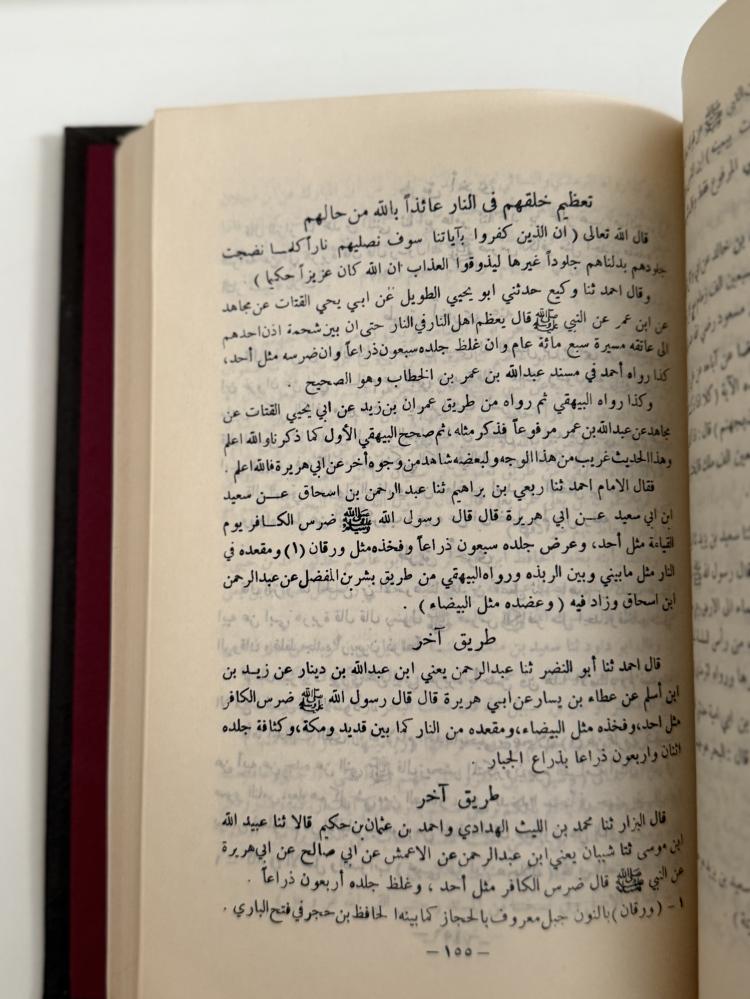 تعظيم خلقهم في النار عائذاً بالله من حالهم
قال الله تعالى ( ان الذين كفروا بآياتنا سوف نصليهم ناراً كلما نضجت
جلودهم بدلناهم جلوداً غيرها ليذوقوا العذاب ان الله كان عزيزاً حكيما )
وقال احمد ثنا وكيع حدثني ابو يحيى الطويل عن ابي يحي القتات عن مجاهد
عن ابن عمر عن النبي ﷺ قال يعظم اهل النار في النار حتى ان بين شحمة اذن احدهم
الى عاتقه مسيرة سبع مائة عام وان غلظ جلده سبعون ذراعاً وان ضرسه مثل أحد،
كذا رواه أحمد في مسند عبدالله بن عمر بن الخطاب وهو الصحيح .
وكذا رواه البيهقي ثم رواه من طريق عمران بن زيد عن ابي يحيي القتات عن
مجاهد عن عبدالله بن عمر مرفوعاً فذكر مثله، ثم صحح البيهقي الأول كما ذكرنا والله اعلم
وهذا الحديث غريب من هذا الوجه ولبعضه شاهد من وجوه أخر عن ابي هريرة فالله اعلم .
فقال الامام احمد ثنا ربعي بن براهيم ثنا عبد الرحمن بن اسحاق عن سعيد
ابن ابي سعيد عن ابي هريرة قال قال رسول الله ﷺ ضرس الكافر يوم
القيامة مثل أحد، وعرض جلده سبعون ذراعاً وفخذه مثل ورقان (١) ومقعده في
النار مثل مابيني وبين الربذه ورواه البيهقي من طريق بشر بن المفضل عن عبدالرحمن
ابن اسحاق وزاد فيه ( وعضده مثل البيضاء ) .
طريق آخر
قال احمد ثنا أبو النضر ثنا عبدالرحمن يعني ابن عبدالله بن دينار عن زيد بن
ابن أسلم عن عطاء بن يسار عن ابي هريرة قال قال رسول الله ﷺ ضرس الكافر
مثل احد، وفخذه مثل البيضاء، ومقعده من النار كما بين قديد ومكة، وكثافة جلده
اثنان واربعون ذراعا بذراع الجبار .
طريق آخر
قال البزار ثنا محمد بن الليث الهدادي واحمد بن عثمان بن حكيم قالا ثنا عبيد الله
ابن موسى ثنا شيبان يعني ابن عبدالرحمن عن الاعمش عن ابي صالح عن ابي هريرة
عن النبي ﷺ قال ضرس الكافر مثل أحد ، وغلظ جلده أربعون ذراعاً .
١ - (ورقان) بالنون جبل معروف بالحجاز كما بينه الحافظ بن حجر في فتح الباري .
- ١٥٥ -